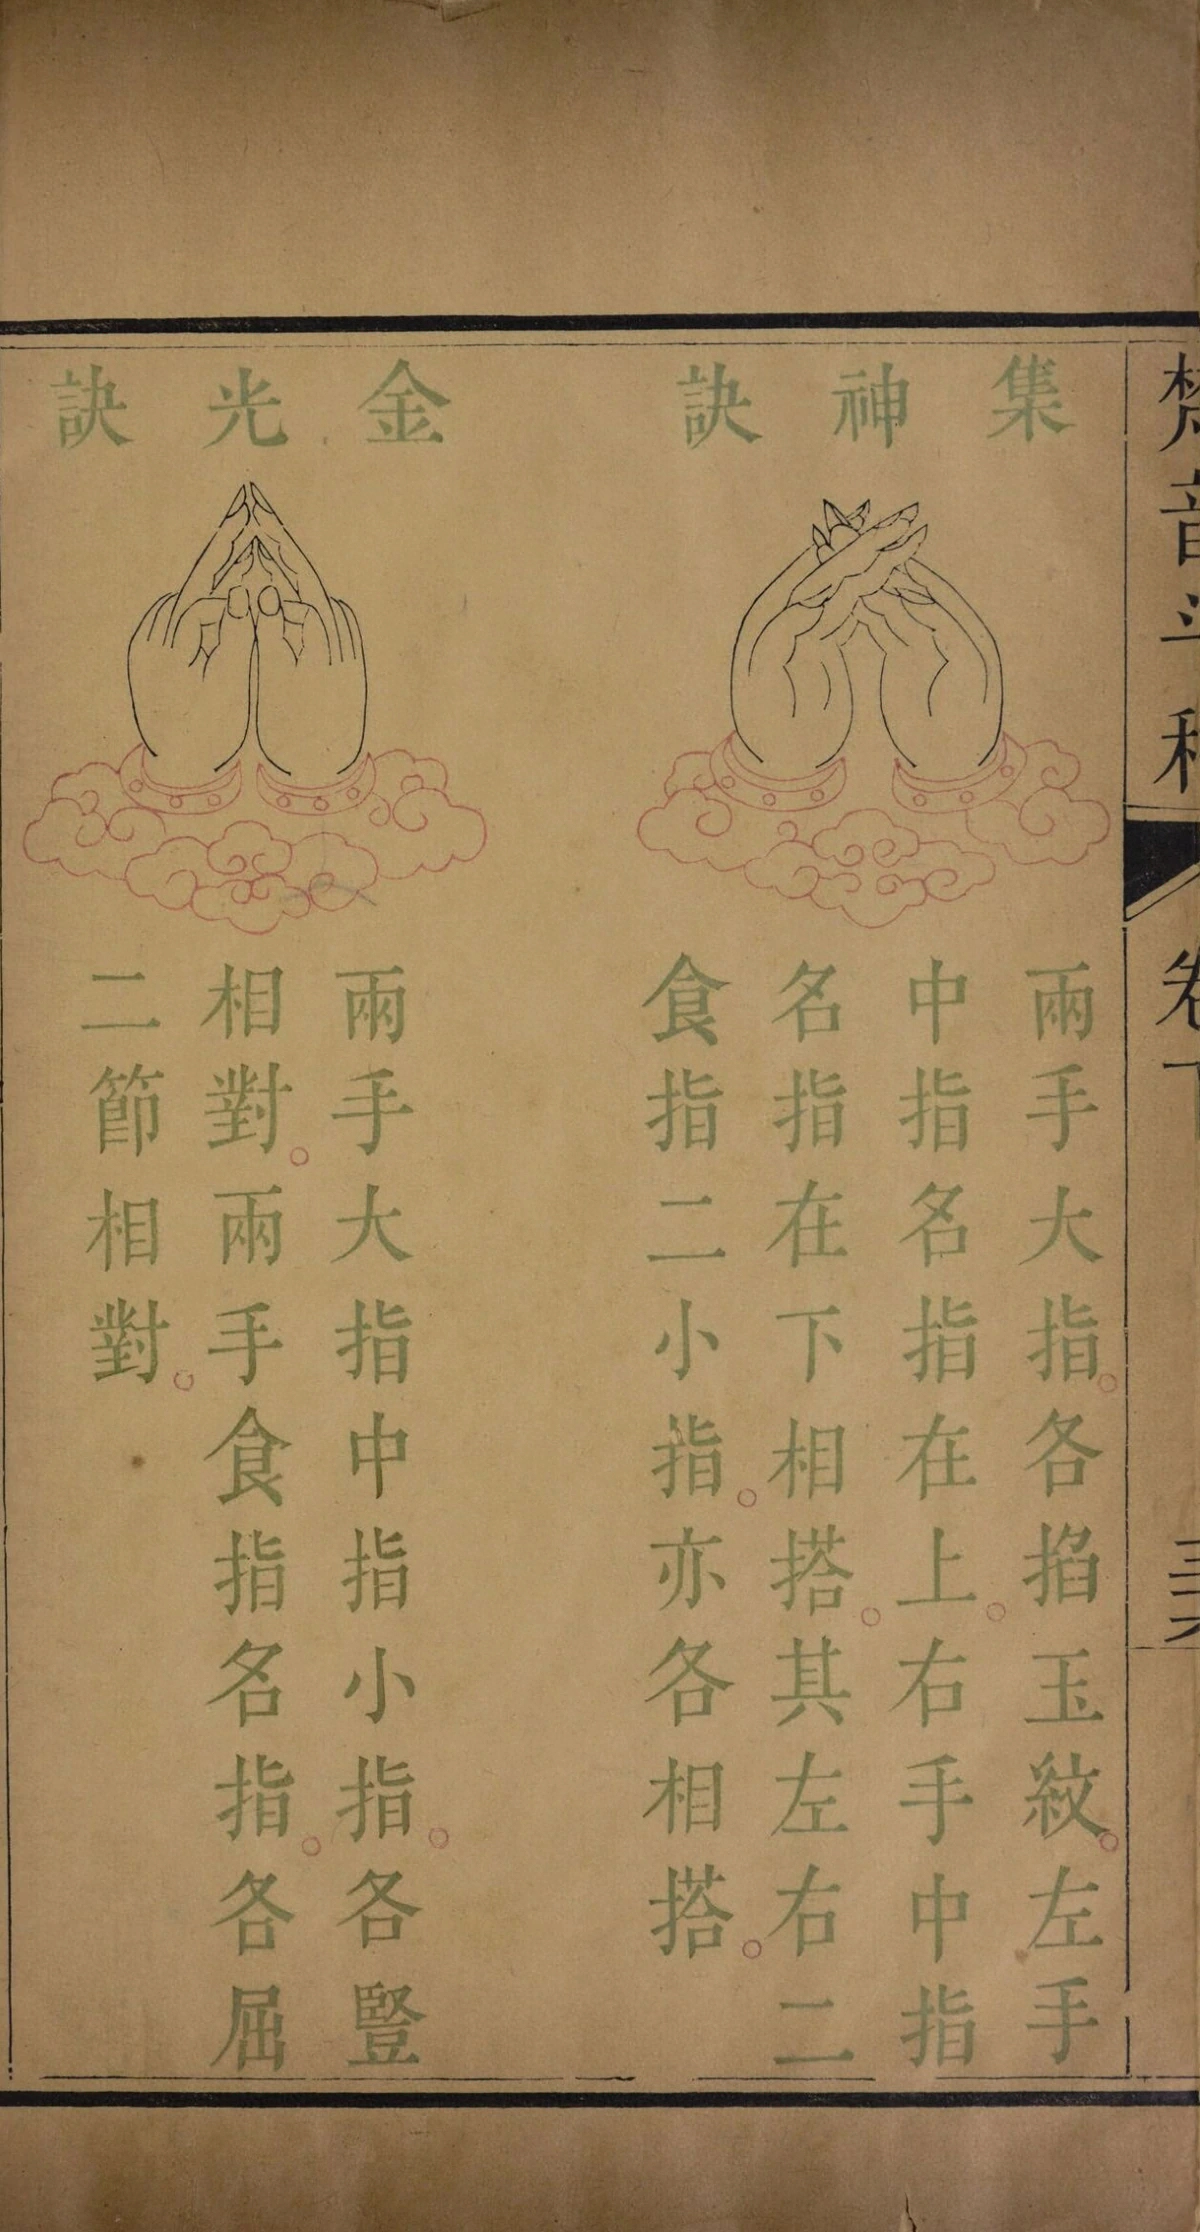 梵音斗科
卷下
三六
集神訣
兩手大指。各掐玉紋。左手
中指名指在上。右手中指
名指在下相搭。其左右二
食指二小指。亦各相搭。
金光訣
兩手大指中指小指。各豎
相對。兩手食指名指。各屈
二節相對。